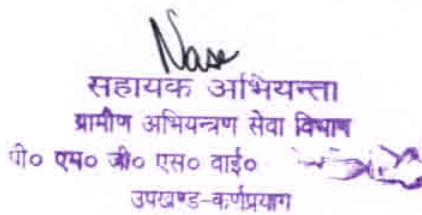 सहायक अभियन्ता
ग्रामीण अभियन्त्रण सेवा विभाग
पी० एम० जी० एस० वाई०
उपखण्ड-कर्णप्रयाग